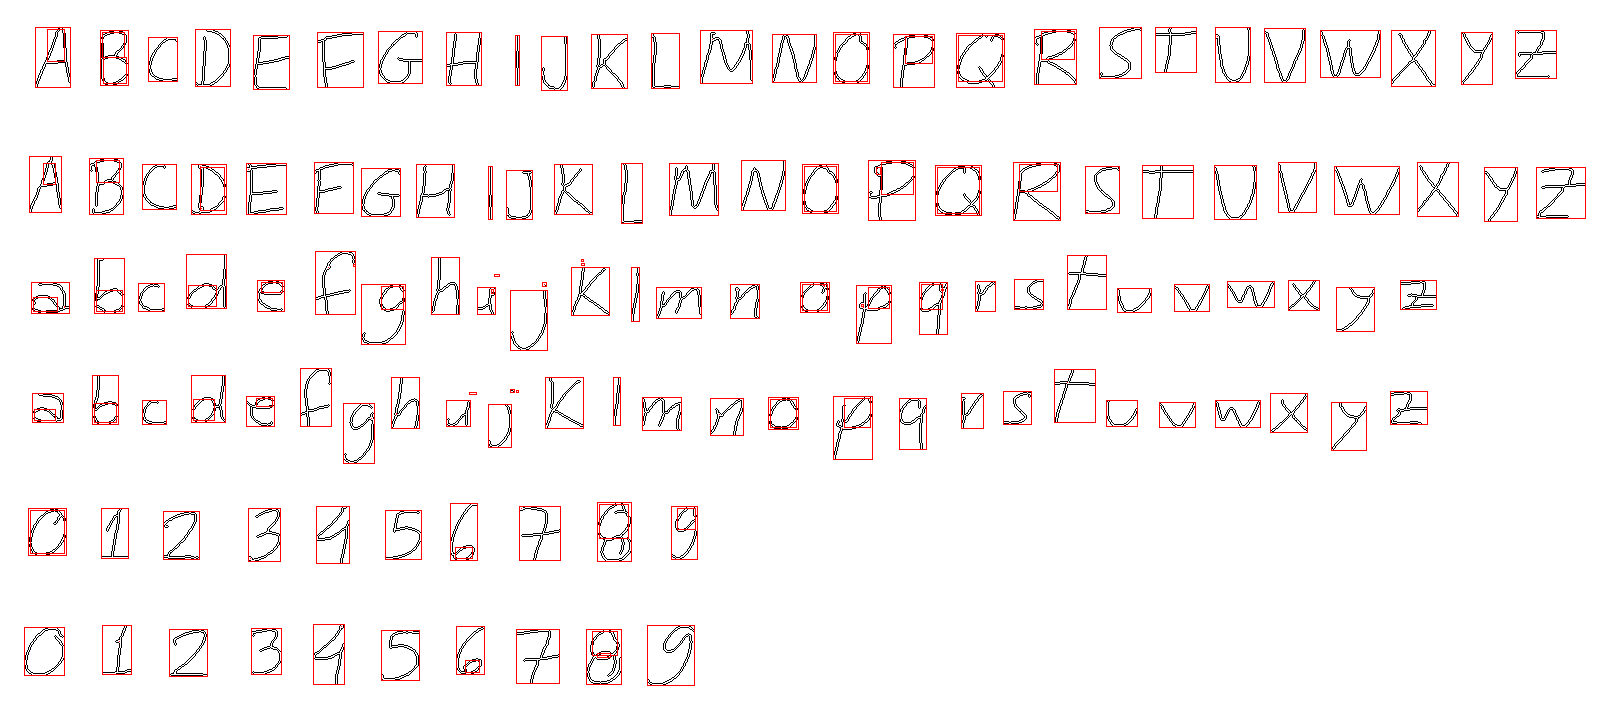 A B C D E F G H I J K L M N O P Q R S T U V W X Y Z
A B C D E F G H I J K L M N O P Q R S T U V W X Y Z
a b c d e f g h i j k l m n o p q r s t u v w x y z
a b c d e f g h i j k l m n o p q r s t u v w x y z
0 1 2 3 4 5 6 7 8 9
0 1 2 3 4 5 6 7 8 9